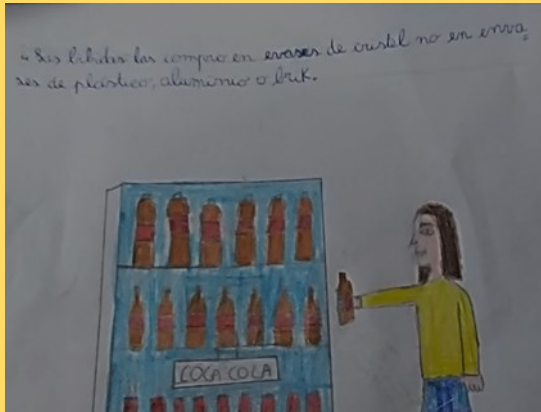 Las bebidas las compro en evases de cristel no en enva
ses de plástico, aluminio o brik.
COCA COLA